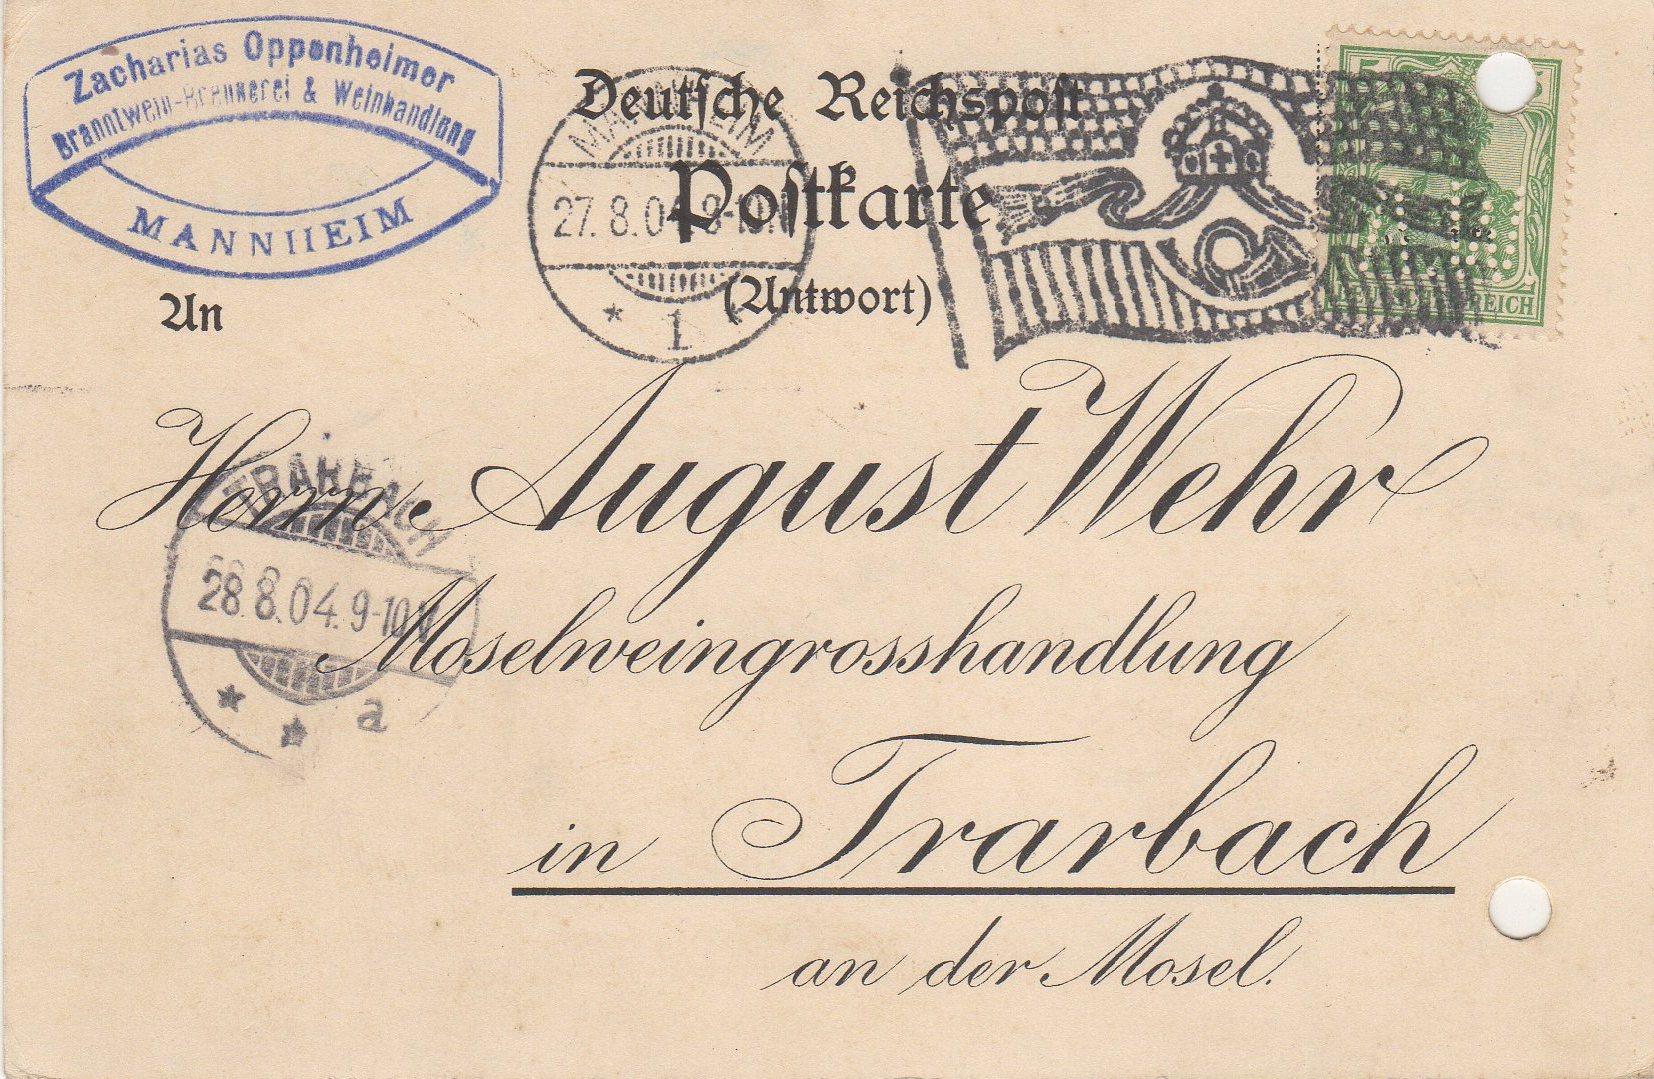 Zacharias Oppenheimer
Branntwein-Brennerei & Weinhandlung
MANNHEIM
Deutsche Reichspost
Postkarte
(Antwort)
MANNHEIM
27.8.04
1
5
REICH
An
Herrn August Wehr
Moselweingrosshandlung
in Trarbach
an der Mosel.
TRARBACH
28.8.04.9-10V
a